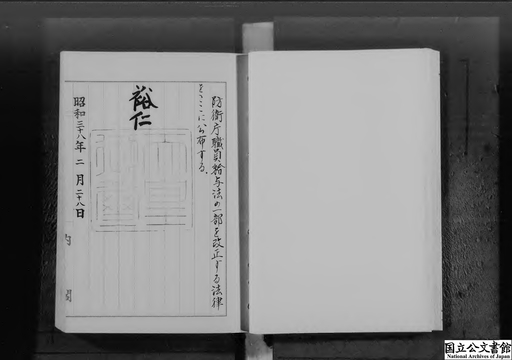 防衛庁職員給与法の一部を改正する法律
をここに公布する。
裕仁
昭和三十八年二月二十八日
国立公文書館
National Archives of Japan